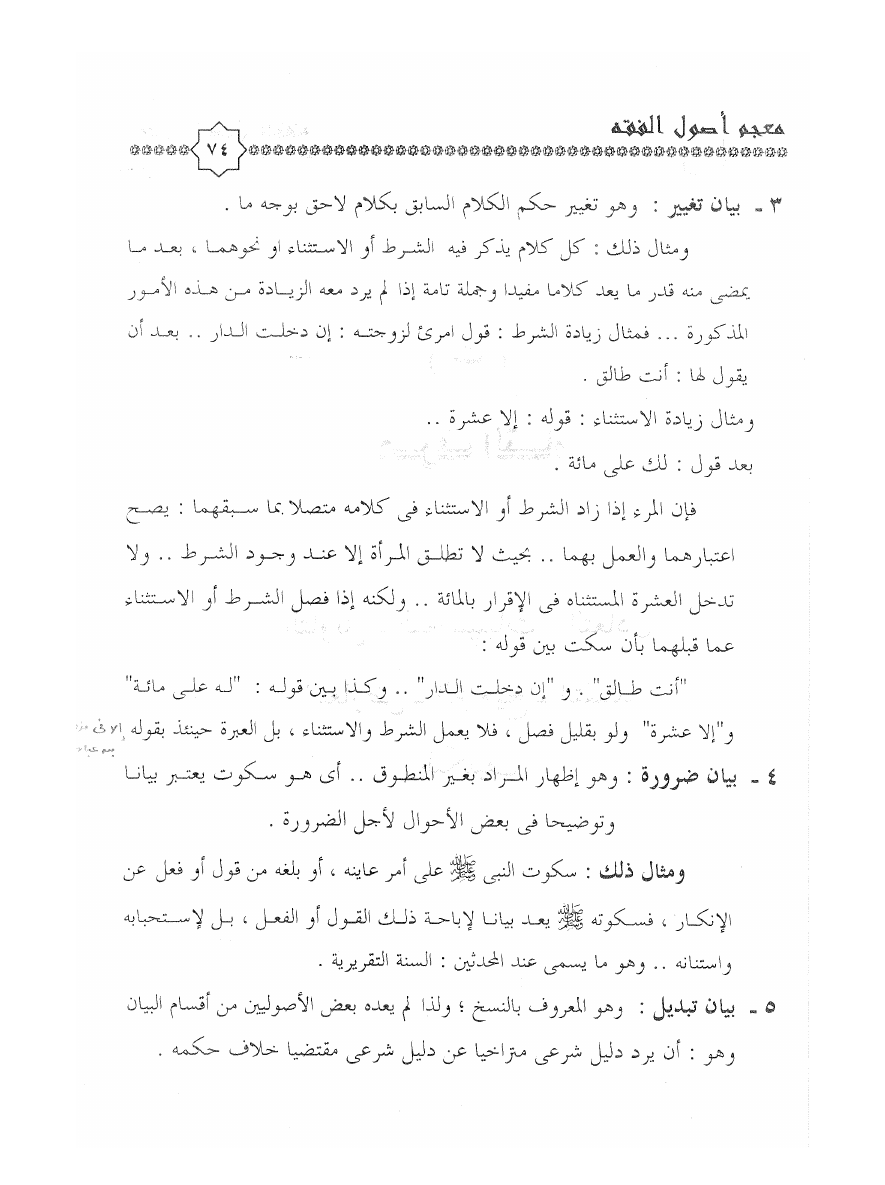 معجم أصول الفقه
٧٤
٣ - بيان تغيير : وهو تغيير حكم الكلام السابق بكلام لاحق بوجه ما .
ومثال ذلك : كل كلام يذكر فيه الشرط أو الاستثناء او نحوهما ، بعد ما
يمضى منه قدر ما يعد كلاما مفيدا وجملة تامة إذا لم يرد معه الزيادة من هذه الأمور
المذكورة ... فمثال زيادة الشرط : قول امرئ لزوجته : إن دخلت الدار .. بعد أن
يقول لها : أنت طالق .
ومثال زيادة الاستثناء : قوله : إلا عشرة ..
بعد قول : لك على مائة .
فإن المرء إذا زاد الشرط أو الاستثناء فى كلامه متصلا بما سبقهما : يصح
اعتبارهما والعمل بهما .. بحيث لا تطلق المرأة إلا عند وجود الشرط .. ولا
تدخل العشرة المستثناه فى الإقرار بالمائة .. ولكنه إذا فصل الشرط أو الاستثناء
عما قبلهما بأن سكت بين قوله :
"أنت طالق" . و "إن دخلت الدار" .. وكذا بين قوله : "له على مائة"
و"إلا عشرة" ولو بقليل فصل ، فلا يعمل الشرط والاستثناء ، بل العبرة حينئذ بقوله
٤ - بيان ضرورة : وهو إظهار المراد بغير المنطوق .. أى هو سكوت يعتبر بيانا
وتوضيحا فى بعض الأحوال لأجل الضرورة .
ومثال ذلك : سكوت النبى ﷺ على أمر عاينه ، أو بلغه من قول أو فعل عن
الإنكار ، فسكوته ﷺ يعد بيانا لإباحة ذلك القول أو الفعل ، بل لإستحبابه
واستنانه .. وهو ما يسمى عند المحدثين : السنة التقريرية .
٥ - بيان تبديل : وهو المعروف بالنسخ ؛ ولذا لم يعده بعض الأصوليين من أقسام البيان
وهو : أن يرد دليل شرعى متراخيا عن دليل شرعى مقتضيا خلاف حكمه .